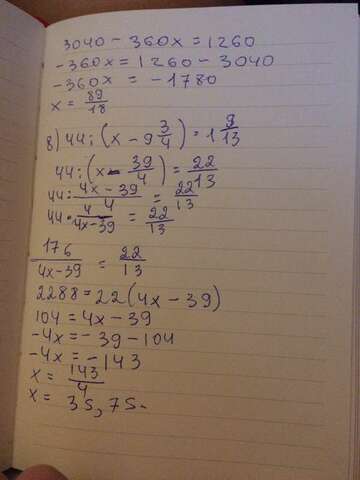 3040 - 360x = 1260
-360x = 1260 - 3040
-360x = -1780
x = 89/18
8) 44 : (x - 9 3/4) = 1 9/13
44 : (x - 39/4) = 22/13
44 : (4x - 39)/4 = 22/13
44 · 4/(4x-39) = 22/13
176/(4x-39) = 22/13
2288 = 22(4x - 39)
104 = 4x - 39
-4x = -39 - 104
-4x = -143
x = 143/4
x = 35,75